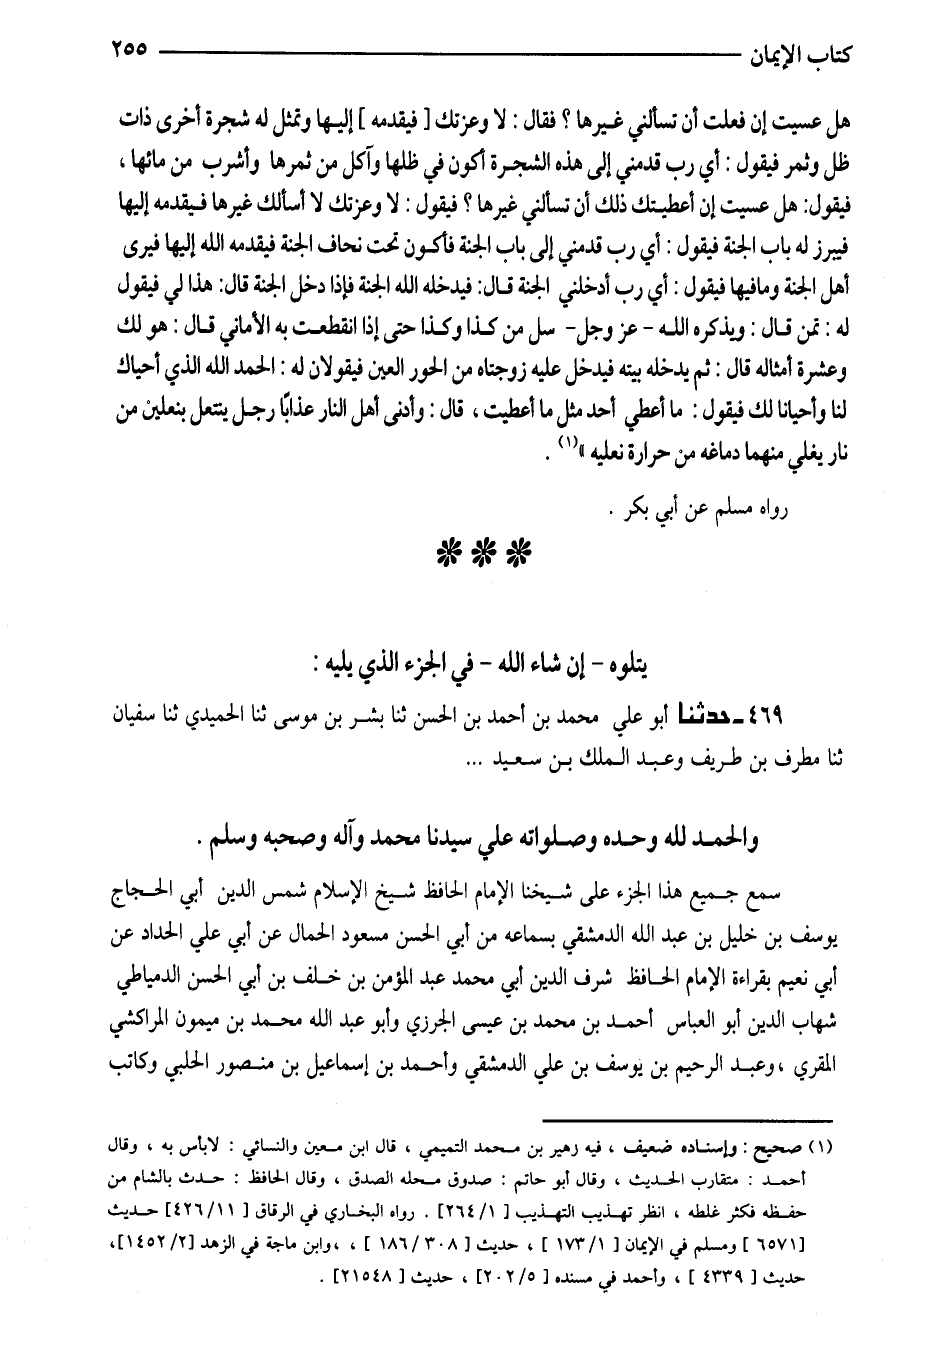 كتاب الإيمان ٢٥٥
هل عسيت إن فعلت أن تسألني غيرها ؟ فقال : لا وعزتك [ فيقدمه ] إليها وتمثل له شجرة أخرى ذات
ظل وثمر فيقول : أي رب قدمني إلى هذه الشجرة أكون في ظلها وآكل من ثمرها وأشرب من مائها ،
فيقول: هل عسيت إن أعطيتك ذلك أن تسألني غيرها ؟ فيقول : لا وعزتك لا أسألك غيرها فيقدمه إليها
فيبرز له باب الجنة فيقول : أي رب قدمني إلى باب الجنة فأكون تحت نحاف الجنة فيقدمه الله إليها فيرى
أهل الجنة ومافيها فيقول : أي رب أدخلني الجنة قال: فيدخله الله الجنة فإذا دخل الجنة قال: هذا لي فيقول
له : تمن قال : ويذكره الله - عز وجل- سل من كذا وكذا حتى إذا انقطعت به الأماني قال : هو لك
وعشرة أمثاله قال : ثم يدخله بيته فيدخل عليه زوجتاه من الحور العين فيقولان له : الحمد الله الذي أحياك
لنا وأحيانا لك فيقول : ما أعطي أحد مثل ما أعطيت ، قال : وأدنى أهل النار عذابًا رجل ينتعل بنعلين من
نار يغلي منهما دماغه من حرارة نعليه »(١) .
رواه مسلم عن أبي بكر .
يتلوه - إن شاء الله - في الجزء الذي يليه :
٤٦٩ـ حدثنا أبو علي محمد بن أحمد بن الحسن ثنا بشر بن موسى ثنا الحميدي ثنا سفيان
ثنا مطرف بن طريف وعبد الملك بن سعيد ...
والحمد لله وحده وصلواته علي سيدنا محمد وآله وصحبه وسلم .
سمع جميع هذا الجزء على شيخنا الإمام الحافظ شيخ الإسلام شمس الدين أبي الحجاج
يوسف بن خليل بن عبد الله الدمشقي بسماعه من أبي الحسن مسعود الحمال عن أبي علي الحداد عن
أبي نعيم بقراءة الإمام الحافظ شرف الدين أبي محمد عبد المؤمن بن خلف بن أبي الحسن الدمياطي
شهاب الدين أبو العباس أحمد بن محمد بن عيسى الجرزي وأبو عبد الله محمد بن ميمون المراكشي
المقري ،وعبد الرحيم بن يوسف بن علي الدمشقي وأحمد بن إسماعيل بن منصور الحلبي وكاتب
(١) صحيح : وإسناده ضعيف ، فيه زهير بن محمد التميمي ، قال ابن معين والنسائي : لابأس به ، وقال
أحمد : متقارب الحديث ، وقال أبو حاتم : صدوق محله الصدق ، وقال الحافظ : حدث بالشام من
حفظه فكثر غلطه ، انظر تهذيب التهذيب [ ٢٦٤/١] . رواه البخاري في الرقاق [ ٤٢٦/١١] حديث
[٦٥٧١ ] ومسلم في الإيمان [ ١٧٣/١ ] ، حديث [ ١٨٦/٣٠٨ ] ، ،وابن ماجة في الزهد [١٤٥٢/٢]،
حديث [ ٤٣٣٩ ] ، وأحمد في مسنده [ ٢٠٢/٥] ، حديث [ ٢١٥٤٨] .